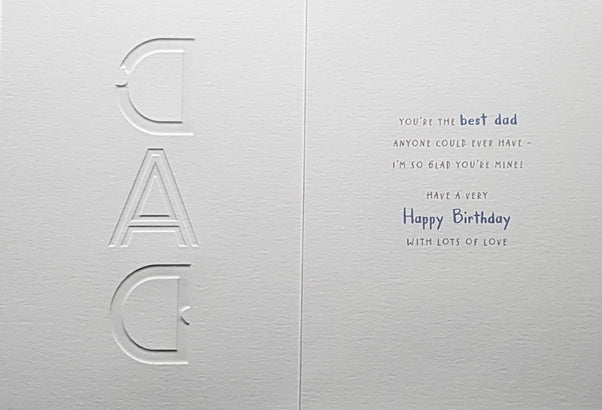 DAD
YOU'RE THE best dad
ANYONE COULD EVER HAVE –
I'M SO GLAD YOU'RE MINE!
HAVE A VERY
Happy Birthday
WITH LOTS OF LOVE